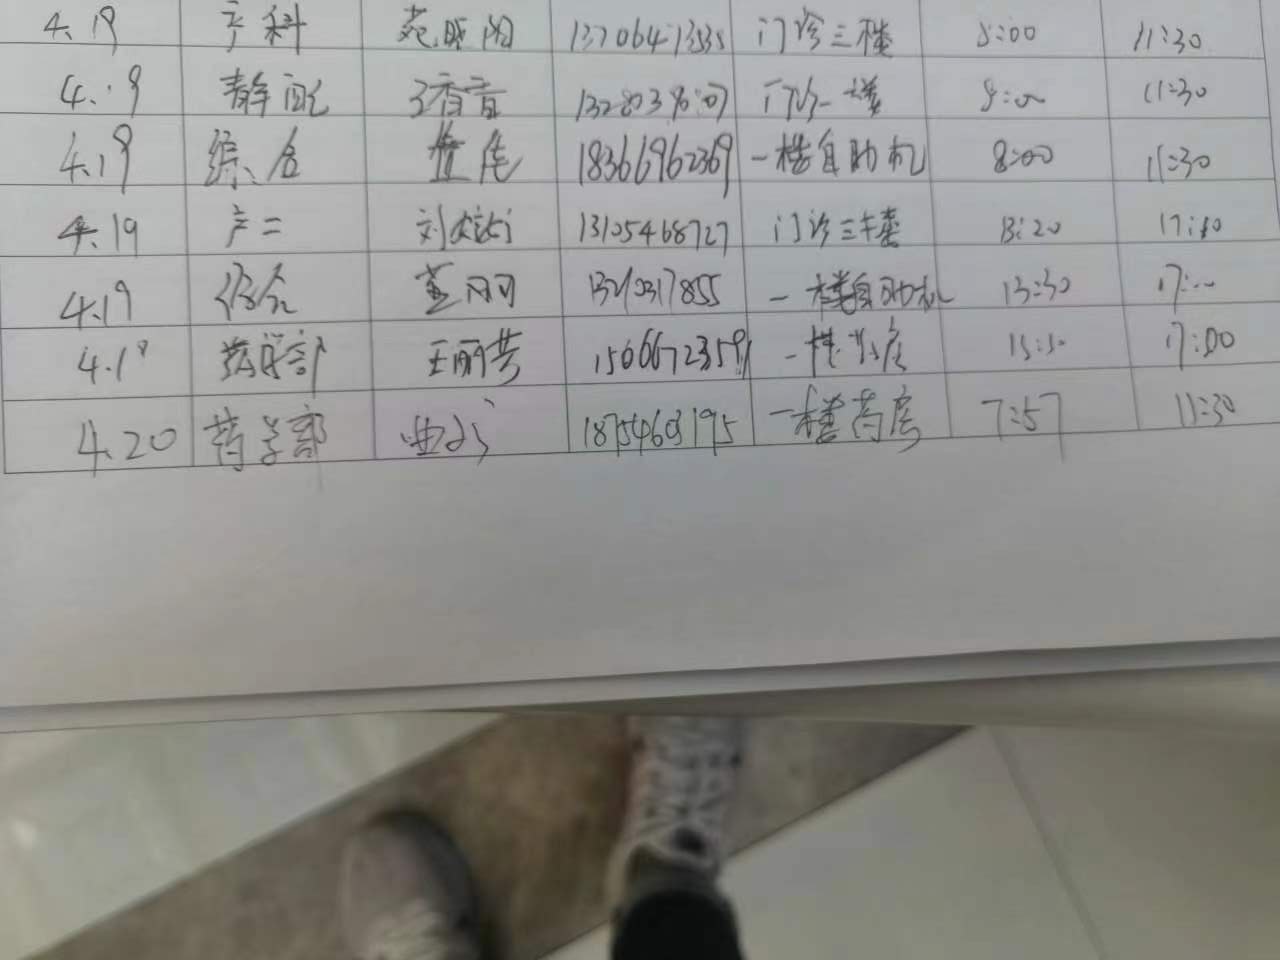 4.19 产科 苑 13706413535 门诊三楼 8:00 11:30
4.19 静配 门诊一楼 8:00 11:30
4.19 综合 18366962369 一楼自助机 8:00 11:30
4.19 产二 刘 13105468727 门诊三楼 13:20 17:10
4.19 综合 董 一楼自助机 13:30 17:00
4.19 药学部 王丽芳 15066723591 一楼药房 13:30 17:00
4.20 药学部 曲 18754603195 一楼药房 7:57 11:30